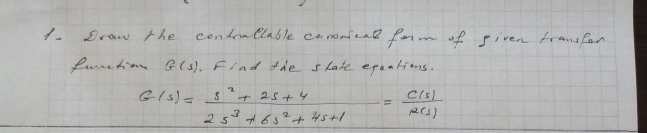 1- Draw the controllable canonical form of given transfer
function G(s). Find the state equations.
G(s) = s² + 2s + 4 / 2s³ + 6s² + 4s + 1 = C(s) / R(s)